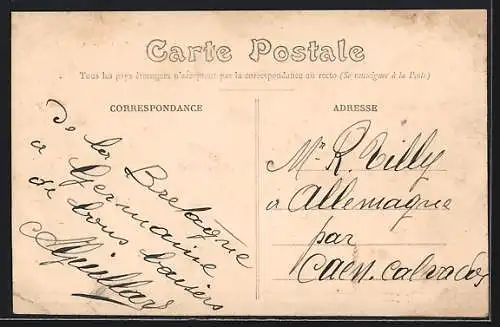 Carte Postale
Tous les pays étrangers n'acceptent pas la correspondance au recto (Se renseigner à la Poste)
CORRESPONDANCE
De la Bretagne
a Germaine
de bons baisers
ADRESSE
Mr R. Tilly
a Allemagne
par
Caen. Calvados